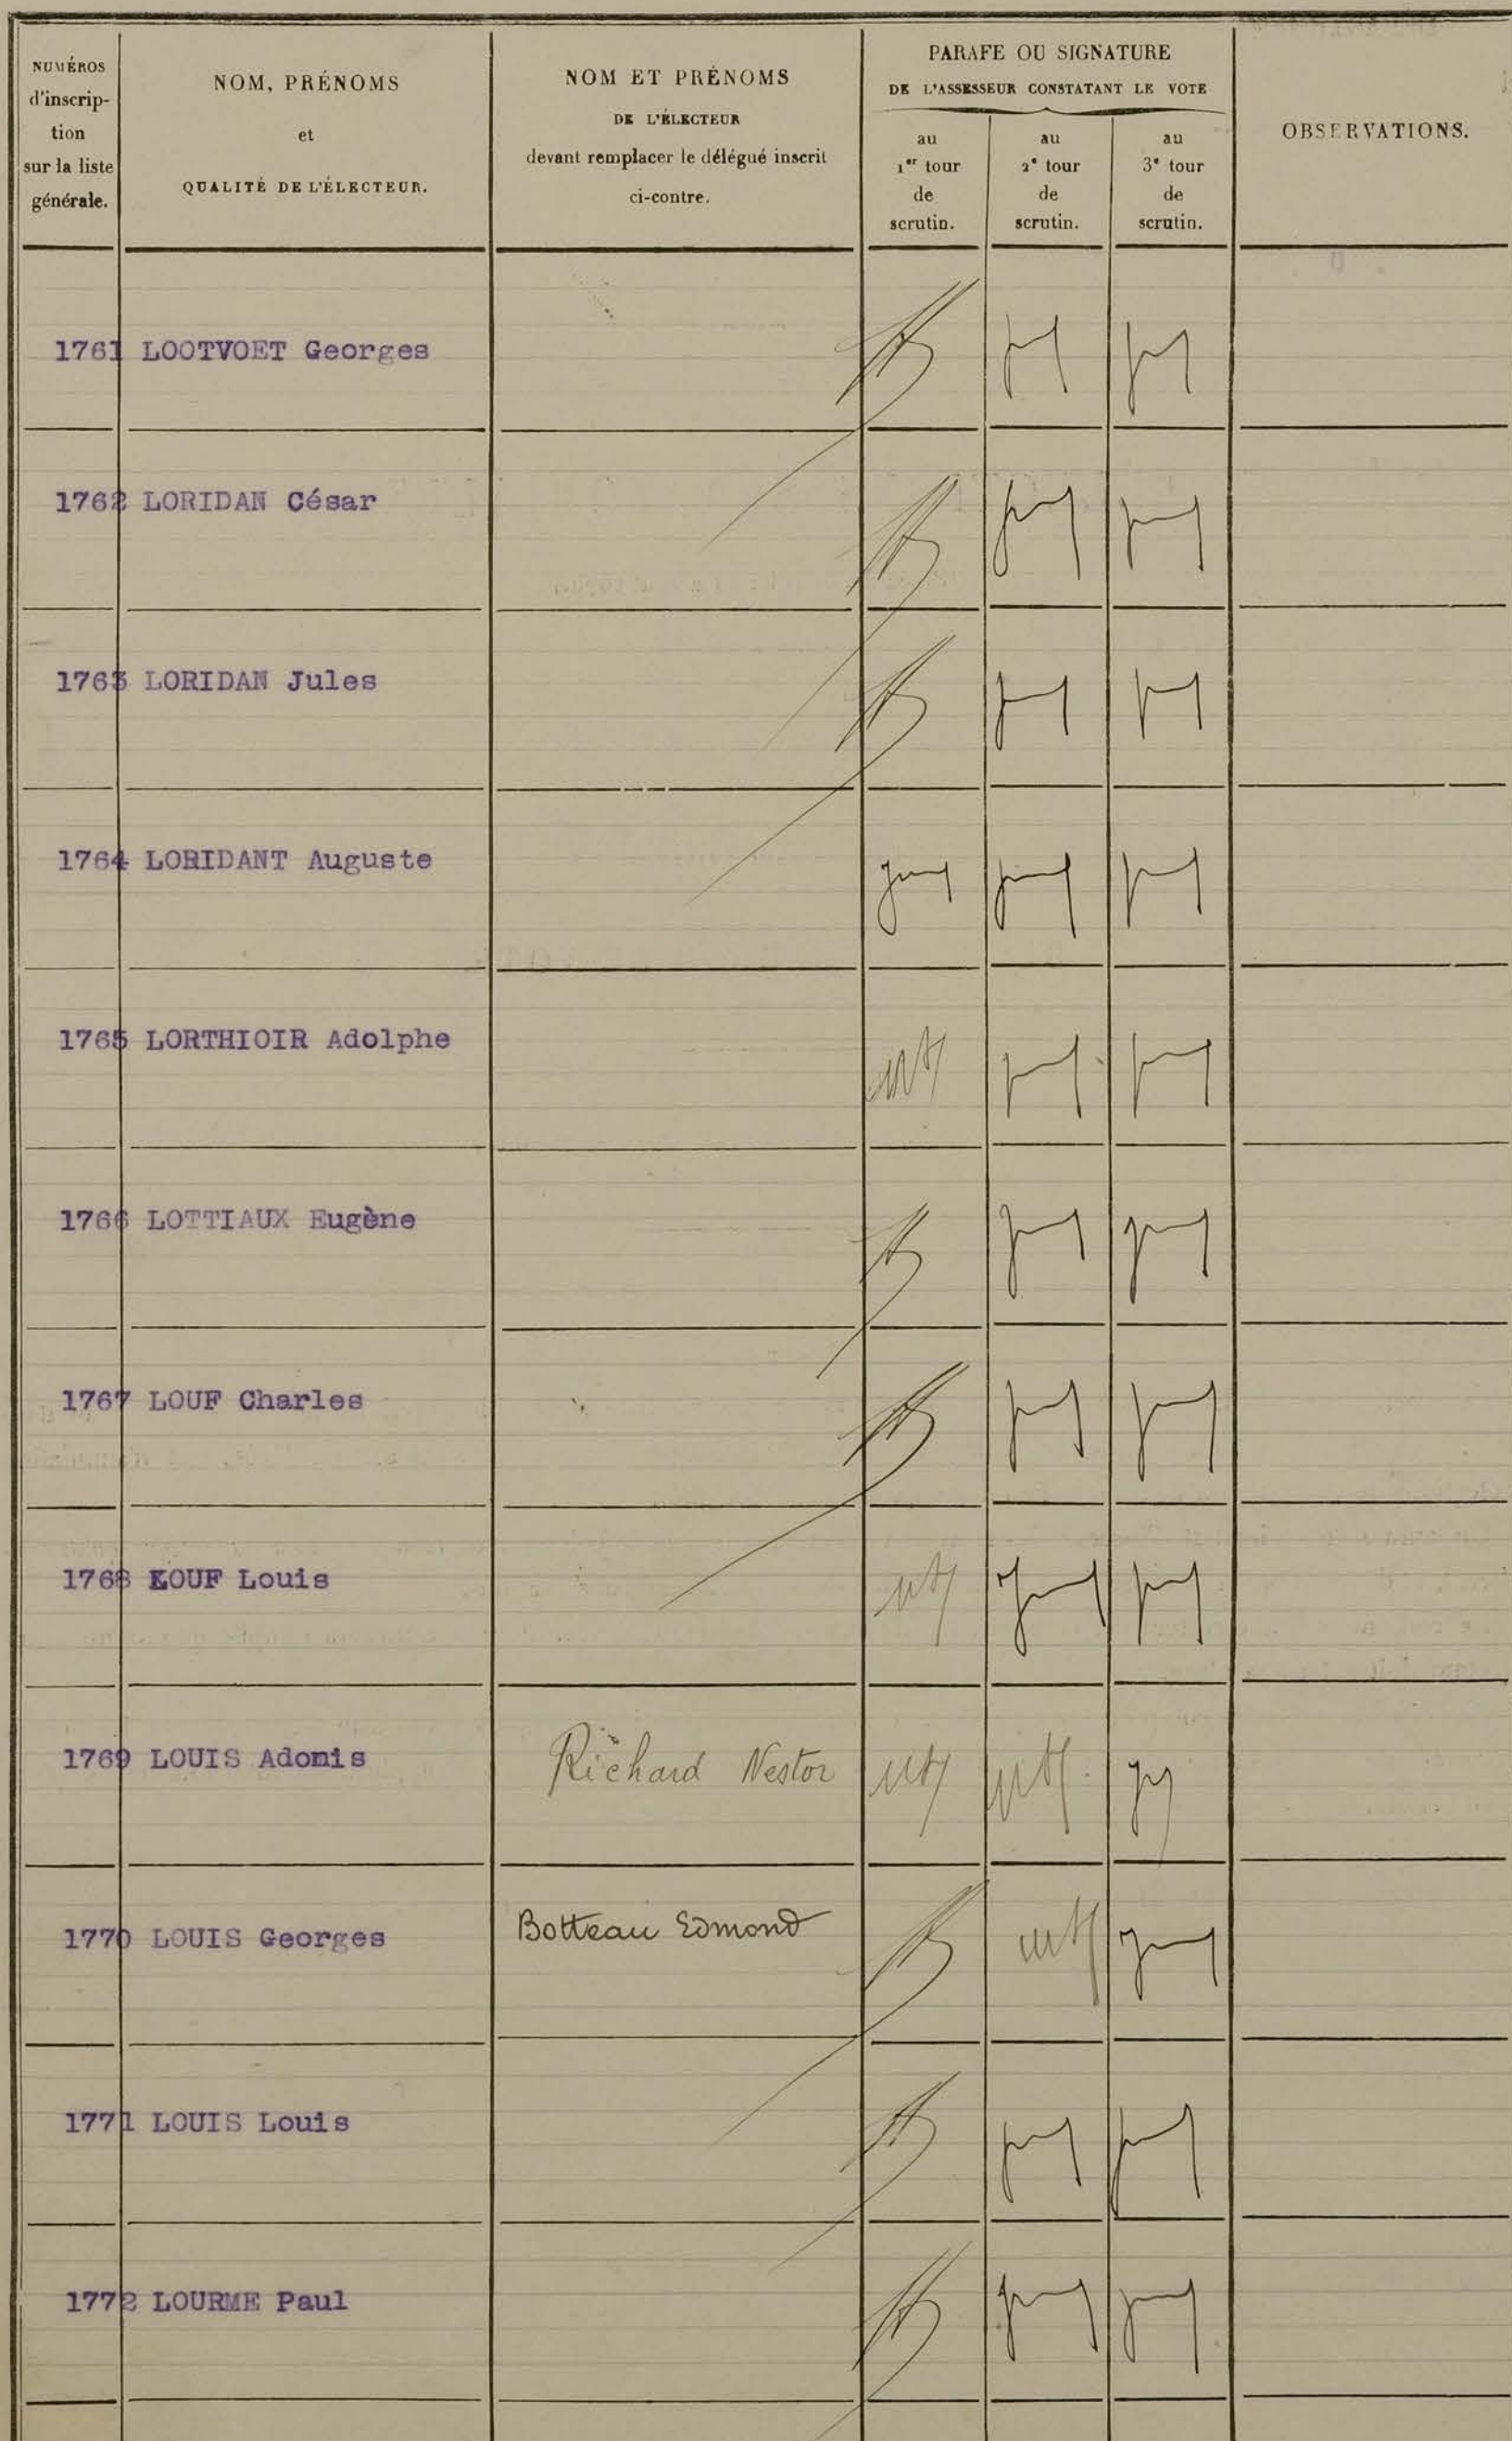 NUMÉROS
d'inscrip-
tion
sur la liste
générale.
NOM, PRÉNOMS
et
QUALITÉ DE L'ÉLECTEUR.
NOM ET PRÉNOMS
DE L'ÉLECTEUR
devant remplacer le délégué inscrit
ci-contre.
PARAFE OU SIGNATURE
DE L'ASSESSEUR CONSTATANT LE VOTE
au
1er tour
de
scrutin.
au
2e tour
de
scrutin.
au
3e tour
de
scrutin.
OBSERVATIONS.
1761 LOOTVOET Georges
1762 LORIDAN César
1763 LORIDAN Jules
1764 LORIDANT Auguste
1765 LORTHIOIR Adolphe
1766 LOTTIAUX Eugène
1767 LOUF Charles
1768 LOUF Louis
1769 LOUIS Adonis Richard Nestor
1770 LOUIS Georges Botteau Edmond
1771 LOUIS Louis
1772 LOURME Paul